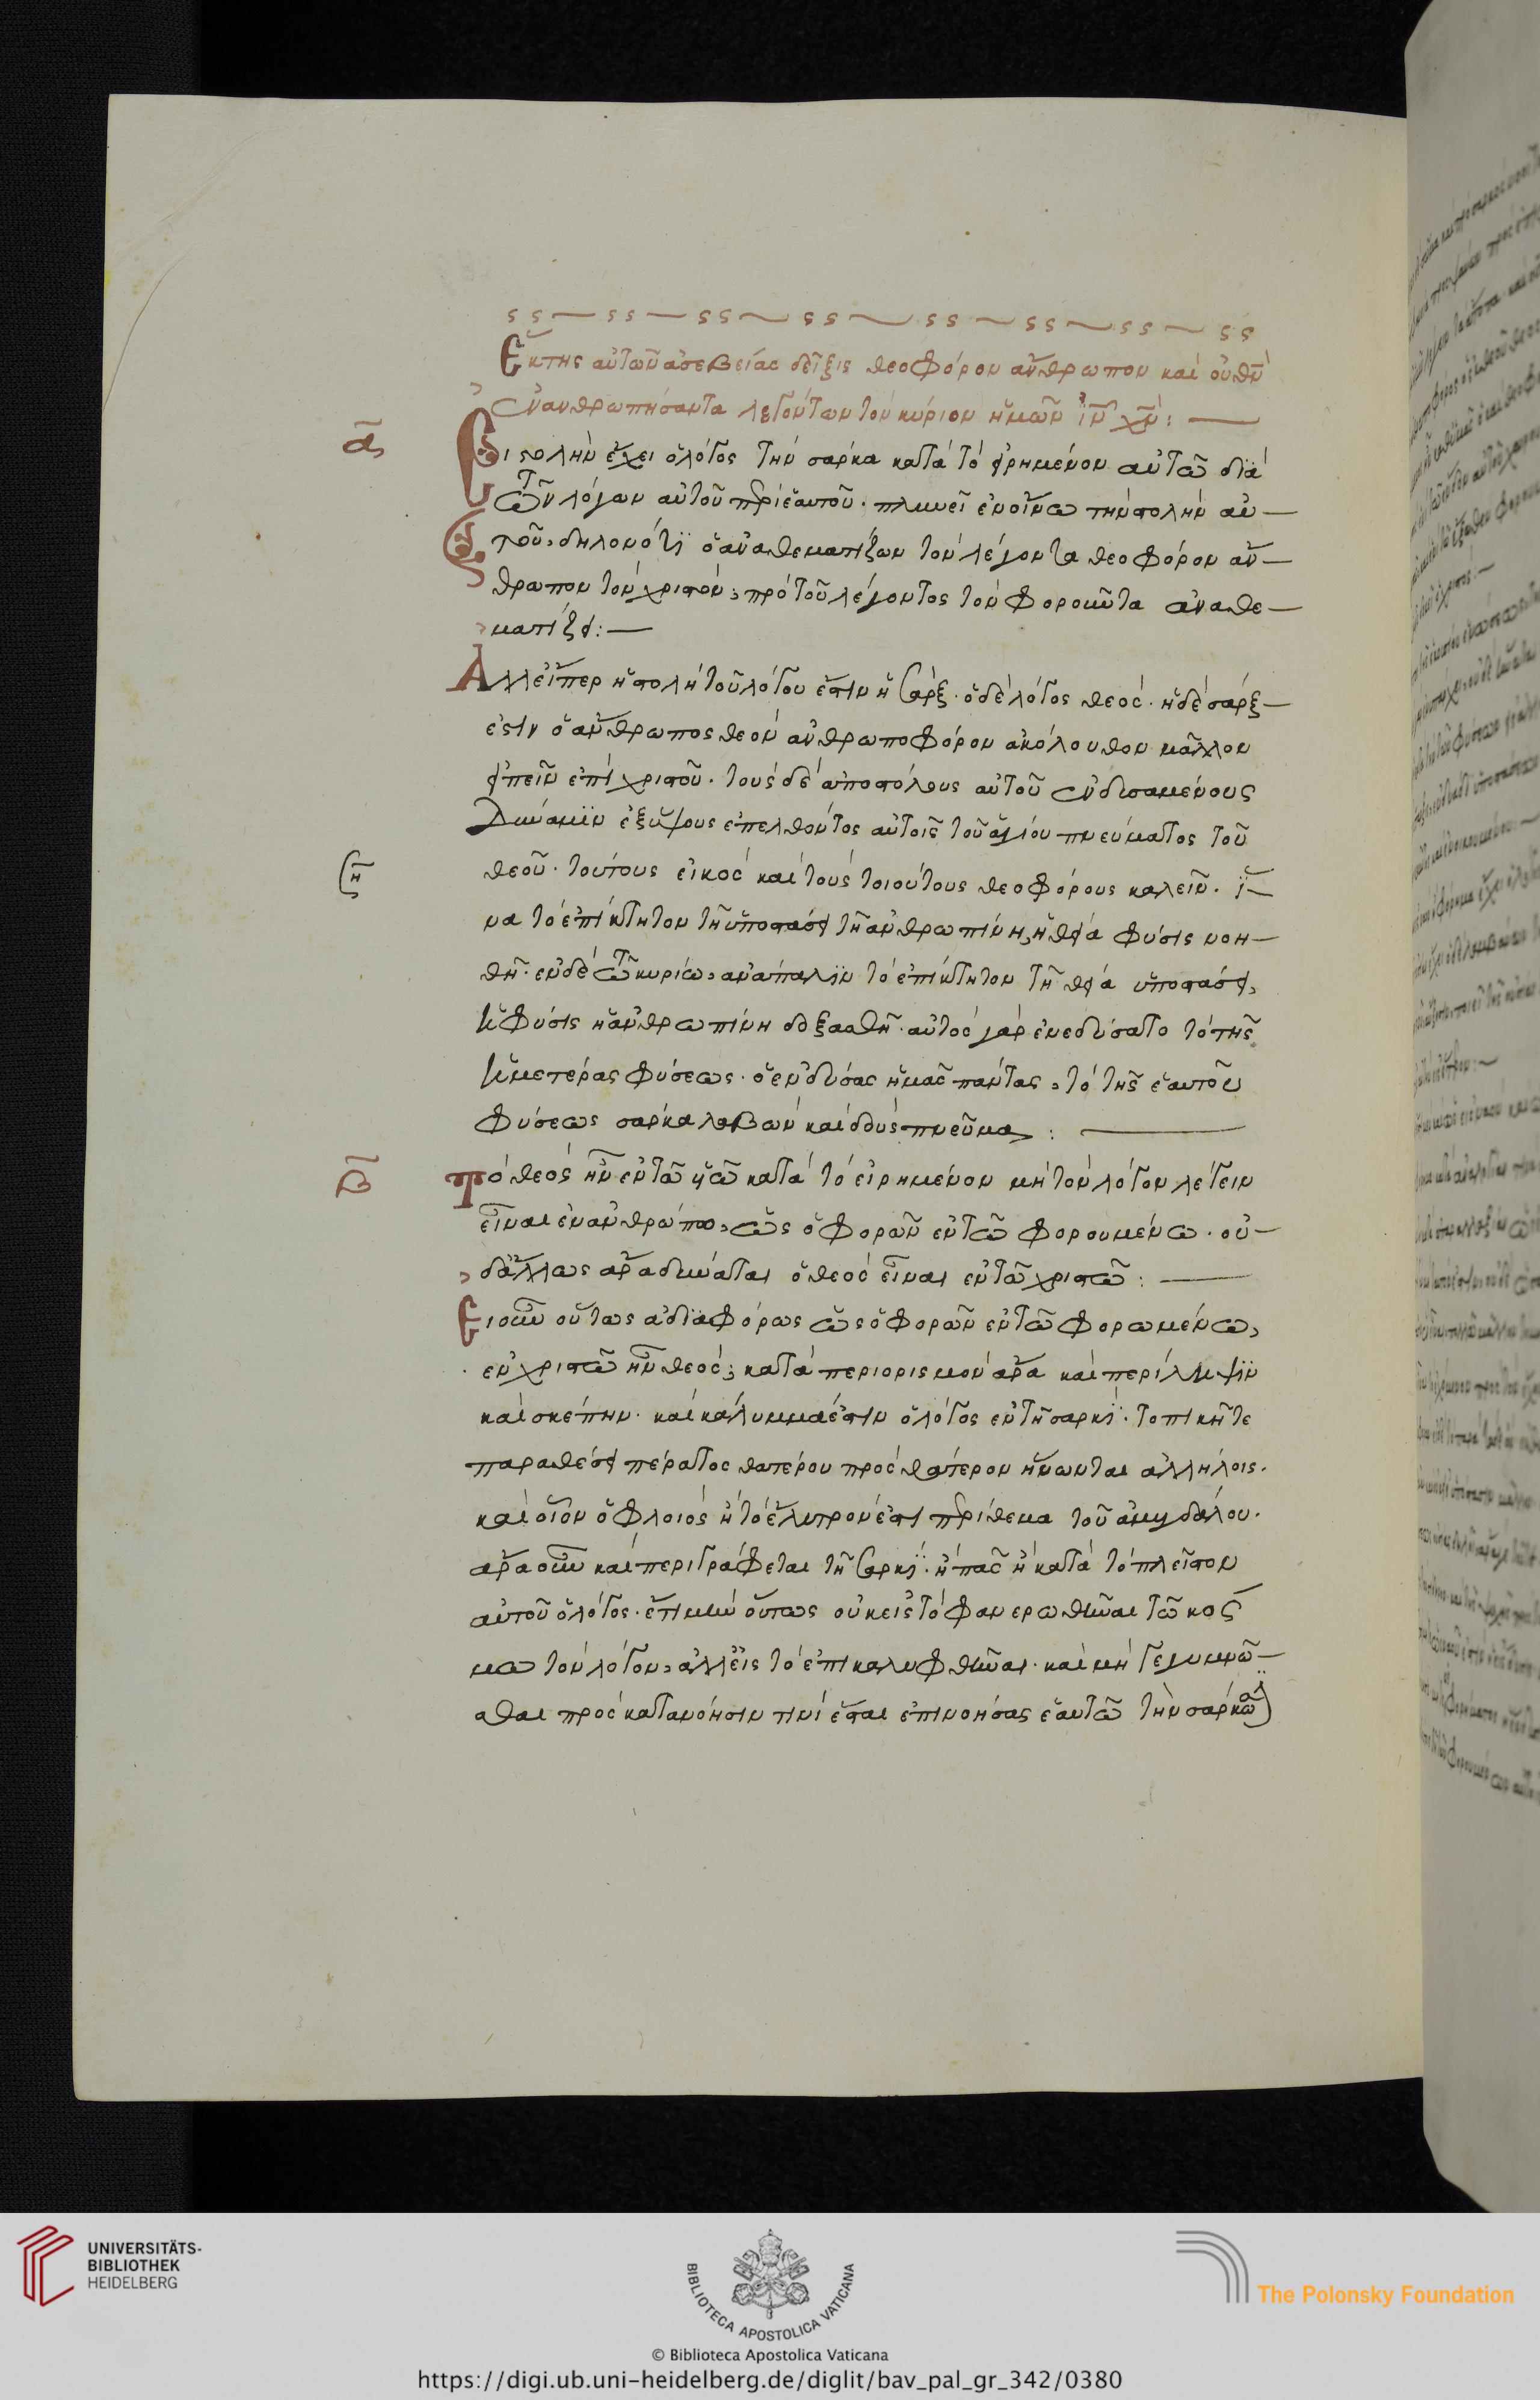 Ἐκ τῆς αὐτῶν ἀσεβείας δεῖξις θεοφόρον ἄνθρωπον καὶ οὐ θν̄
ἐνανθρωπήσαντα λεγόντων τὸν κύριον ἡμῶν ἰν̄ χν̄:
ᾱ
Εἰ στολὴν ἔχει ὁ λόγος τὴν σάρκα κατὰ τὸ εἰρημένον αὐτῶ διὰ
τῶν λόγων αὐτοῦ περὶ ἑαυτοῦ· πλυνεῖ ἐν οἴνω τὴν στολὴν αὐ
τοῦ, δηλονότι ὁ ἀναθεματίζων τὸν λέγοντα θεοφόρον ἄν
θρωπον τὸν χριστόν, πρὸ τοῦ λέγοντος τὸν φοροῦντα ἀναθε
ματίζει:
Ἀλλ' εἴπερ ἡ στολὴ τοῦ λόγου ἔστιν ἡ σάρξ· ὁ δὲ λόγος θεός· ἡ δὲ σάρξ
ἐστιν ὁ ἄνθρωπος θεὸν ἀνθρωποφόρον ἀκόλουθον μᾶλλον
εἰπεῖν ἐπὶ χριστοῦ· τοὺς δὲ ἀποστόλους αὐτοῦ ἐνδυσαμένους
δύναμιν ἐξ ὕψους ἐπελθόντος αὐτοῖς τοῦ ἁγίου πνεύματος τοῦ
θεοῦ· τούτους εἰκὸς καὶ τοὺς τοιούτους θεοφόρους καλεῖν· ἵ
να τὸ ἐπίκτητον τῆ ὑποστάσει τῆ ἀνθρωπίνη, ἡ θεία φύσις νοη
θῆ· ἐν δὲ τῶ κυρίω, ἀνάπαλιν τὸ ἐπίκτητον τῆ θεία ὑποστάσει,
ἡ φύσις ἡ ἀνθρωπίνη δοξασθῆ· αὐτὸς γὰρ ἐνεδύσατο τὸ τῆς
ἡμετέρας φύσεως· ὁ ἐνδύσας ἡμᾶς πάντας, τὸ τῆς ἑαυτοῦ
φύσεως σάρκα λαβὼν καὶ δοὺς πνεῦμα:
β̄
τὸ θεὸς ἦν ἐν τῶ υἱῶ κατὰ τὸ εἰρημένον μὴ τὸν λόγον λέγειν
εἶναι ἐν ἀνθρώπω, ὡς ὁ φορῶν ἐν τῶ φορουμένω· οὐ
δ' ἄλλως ἄρα δύναται ὁ θεὸς εἶναι ἐν τῶ χριστῶ:
Εἰ οὖν οὕτως ἀδιαφόρως ὡς ὁ φορῶν ἐν τῶ φορωμένω,
ἐν χριστῶ ἦν θεός, κατὰ περιορισμὸν ἄρα καὶ περίληψιν
καὶ σκέπην· καὶ κάλυμμα ἐστιν ὁ λόγος ἐν τῆ σαρκὶ· τοπικῆ τε
παραθέσει πέρατος θατέρου πρὸς θάτερον ἥνωνται ἀλλήλοις·
καὶ οἷον ὁ φλοιὸς ἢ τὸ ἔλυτρον ἐστι περίθεμα τοῦ ἀμυδάλου·
ἄρα οὖν καὶ περιγράφεται τῆ σαρκὶ· ἢ πᾶς ἢ κατὰ τὸ πλεῖστον
αὐτοῦ ὁ λόγος· ἔτι μὴν οὕτως οὐκ εἰς τὸ φανερωθῆναι τῶ κοσ
μω τὸν λόγον, ἀλλ' εἰς τὸ ἐπικαλυφθῆναι· καὶ μὴ γεγυμνῶ
σθαι πρὸς κατανόησιν τινὶ ἔσται ἐπινοήσας ἑαυτῶ τὴν σάρκω
UNIVERSITÄTS-
BIBLIOTHEK
HEIDELBERG
BIBLIOTECA APOSTOLICA VATICANA
The Polonsky Foundation
© Biblioteca Apostolica Vaticana
https://digi.ub.uni-heidelberg.de/diglit/bav_pal_gr_342/0380